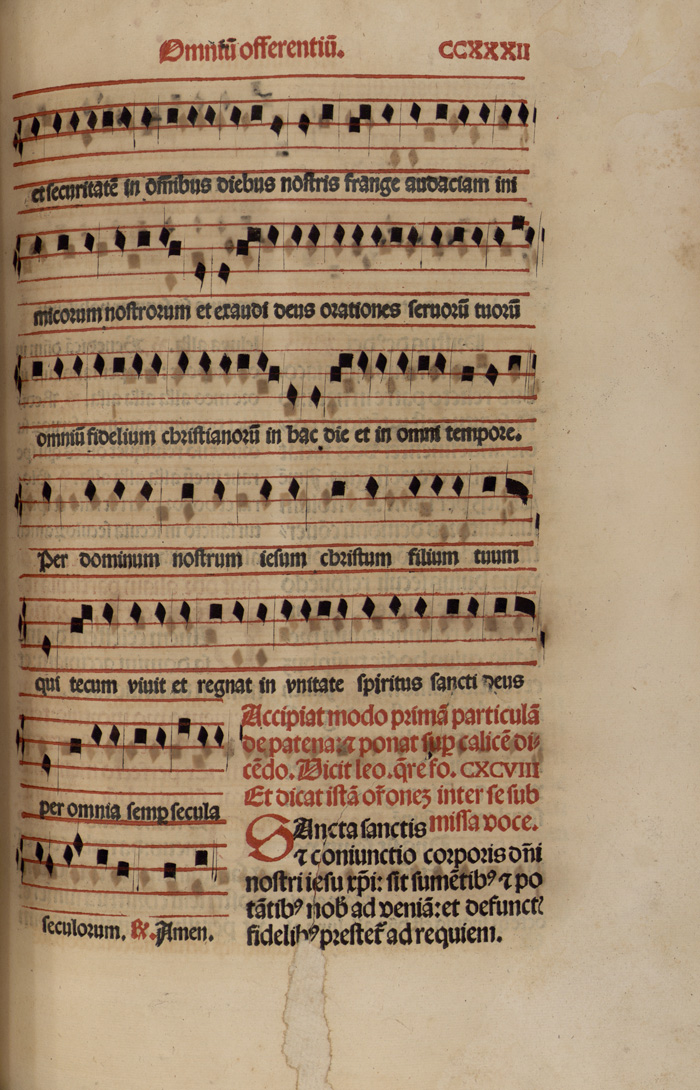 Omniū offerentiū.
CCXXXII
et securitatē in oībus diebus nostris frange audaciam ini
micorum nostrorum et exaudi deus orationes seruorū tuorū
omniū fidelium christianorū in hac die et in omni tempore.
Per dominum nostrum iesum christum filium tuum
qui tecum viuit et regnat in vnitate spiritus sancti deus
per omnia semꝑ secula
seculorum. ℟. Amen.
Accipiat modo primā particulā
de patena: ⁊ ponat suꝑ calicē di-
cēdo. Dicit leo. q̄re fo. CXCVIII
Et dicat istā or̄onez inter se sub
missa voce.
SAncta sanctis
⁊ coniunctio corporis dn̄i
nostri iesu xp̄i: sit sumētibꝰ ⁊ po
tātibꝰ nob̄ ad veniā: et defunct̄
fidelibꝰ prestet̄ ad requiem.